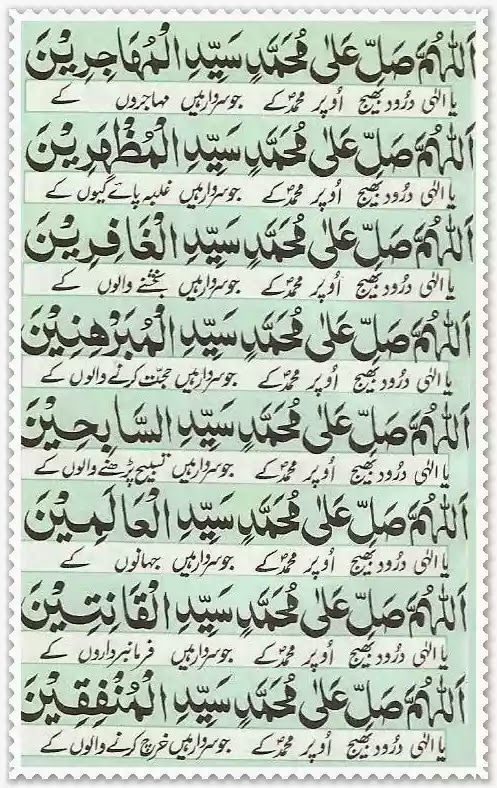 اَللّٰهُمَّ صَلِّ عَلٰى مُحَمَّدٍ سَيِّدِ الْمُهَاجِرِيْنَ
یا الٰہی درُود بھیج اُوپر محمدؐ کے جو سردار ہیں مہاجروں کے
اَللّٰهُمَّ صَلِّ عَلٰى مُحَمَّدٍ سَيِّدِ الْمُظْهَرِيْنَ
یا الٰہی درُود بھیج اُوپر محمدؐ کے جو سردار ہیں غلبہ پائے گیوں کے
اَللّٰهُمَّ صَلِّ عَلٰى مُحَمَّدٍ سَيِّدِ الْغَافِرِيْنَ
یا الٰہی درُود بھیج اُوپر محمدؐ کے جو سردار ہیں بخشنے والوں کے
اَللّٰهُمَّ صَلِّ عَلٰى مُحَمَّدٍ سَيِّدِ الْمُبَرْهِنِيْنَ
یا الٰہی درُود بھیج اُوپر محمدؐ کے جو سردار ہیں حجت کرنے والوں کے
اَللّٰهُمَّ صَلِّ عَلٰى مُحَمَّدٍ سَيِّدِ السَّابِحِيْنَ
یا الٰہی درُود بھیج اُوپر محمدؐ کے جو سردار ہیں تسبیح پڑھنے والوں کے
اَللّٰهُمَّ صَلِّ عَلٰى مُحَمَّدٍ سَيِّدِ الْعَالَمِيْنَ
یا الٰہی درُود بھیج اُوپر محمدؐ کے جو سردار ہیں جہانوں کے
اَللّٰهُمَّ صَلِّ عَلٰى مُحَمَّدٍ سَيِّدِ الْقَانِتِيْنَ
یا الٰہی درُود بھیج اُوپر محمدؐ کے جو سردار ہیں فرمانبرداروں کے
اَللّٰهُمَّ صَلِّ عَلٰى مُحَمَّدٍ سَيِّدِ الْمُنْفِقِيْنَ
یا الٰہی درُود بھیج اُوپر محمدؐ کے جو سردار ہیں خرچ کرنے والوں کے